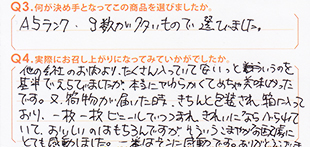 Q3.何が決め手となってこの商品を選びましたか。
A5ランク・g数が多いもので選びました。
Q4.実際にお召し上がりになってみていかがでしたか。
他の会社のお肉より、たくさん入っていてないっというのを
基準でえらんでましたが、本当にやわらかくてめちゃ美味しかった
です。又、荷物が届いた時、きちんと包装され、箱に入って
おり、一枚一枚ビニールでつつまれ、きれいにならべられて
いて、おいしいのはもちろんですが、そういうこまやかな配慮に
とても感動しました。一番はそこに感動です。ありがとうございま